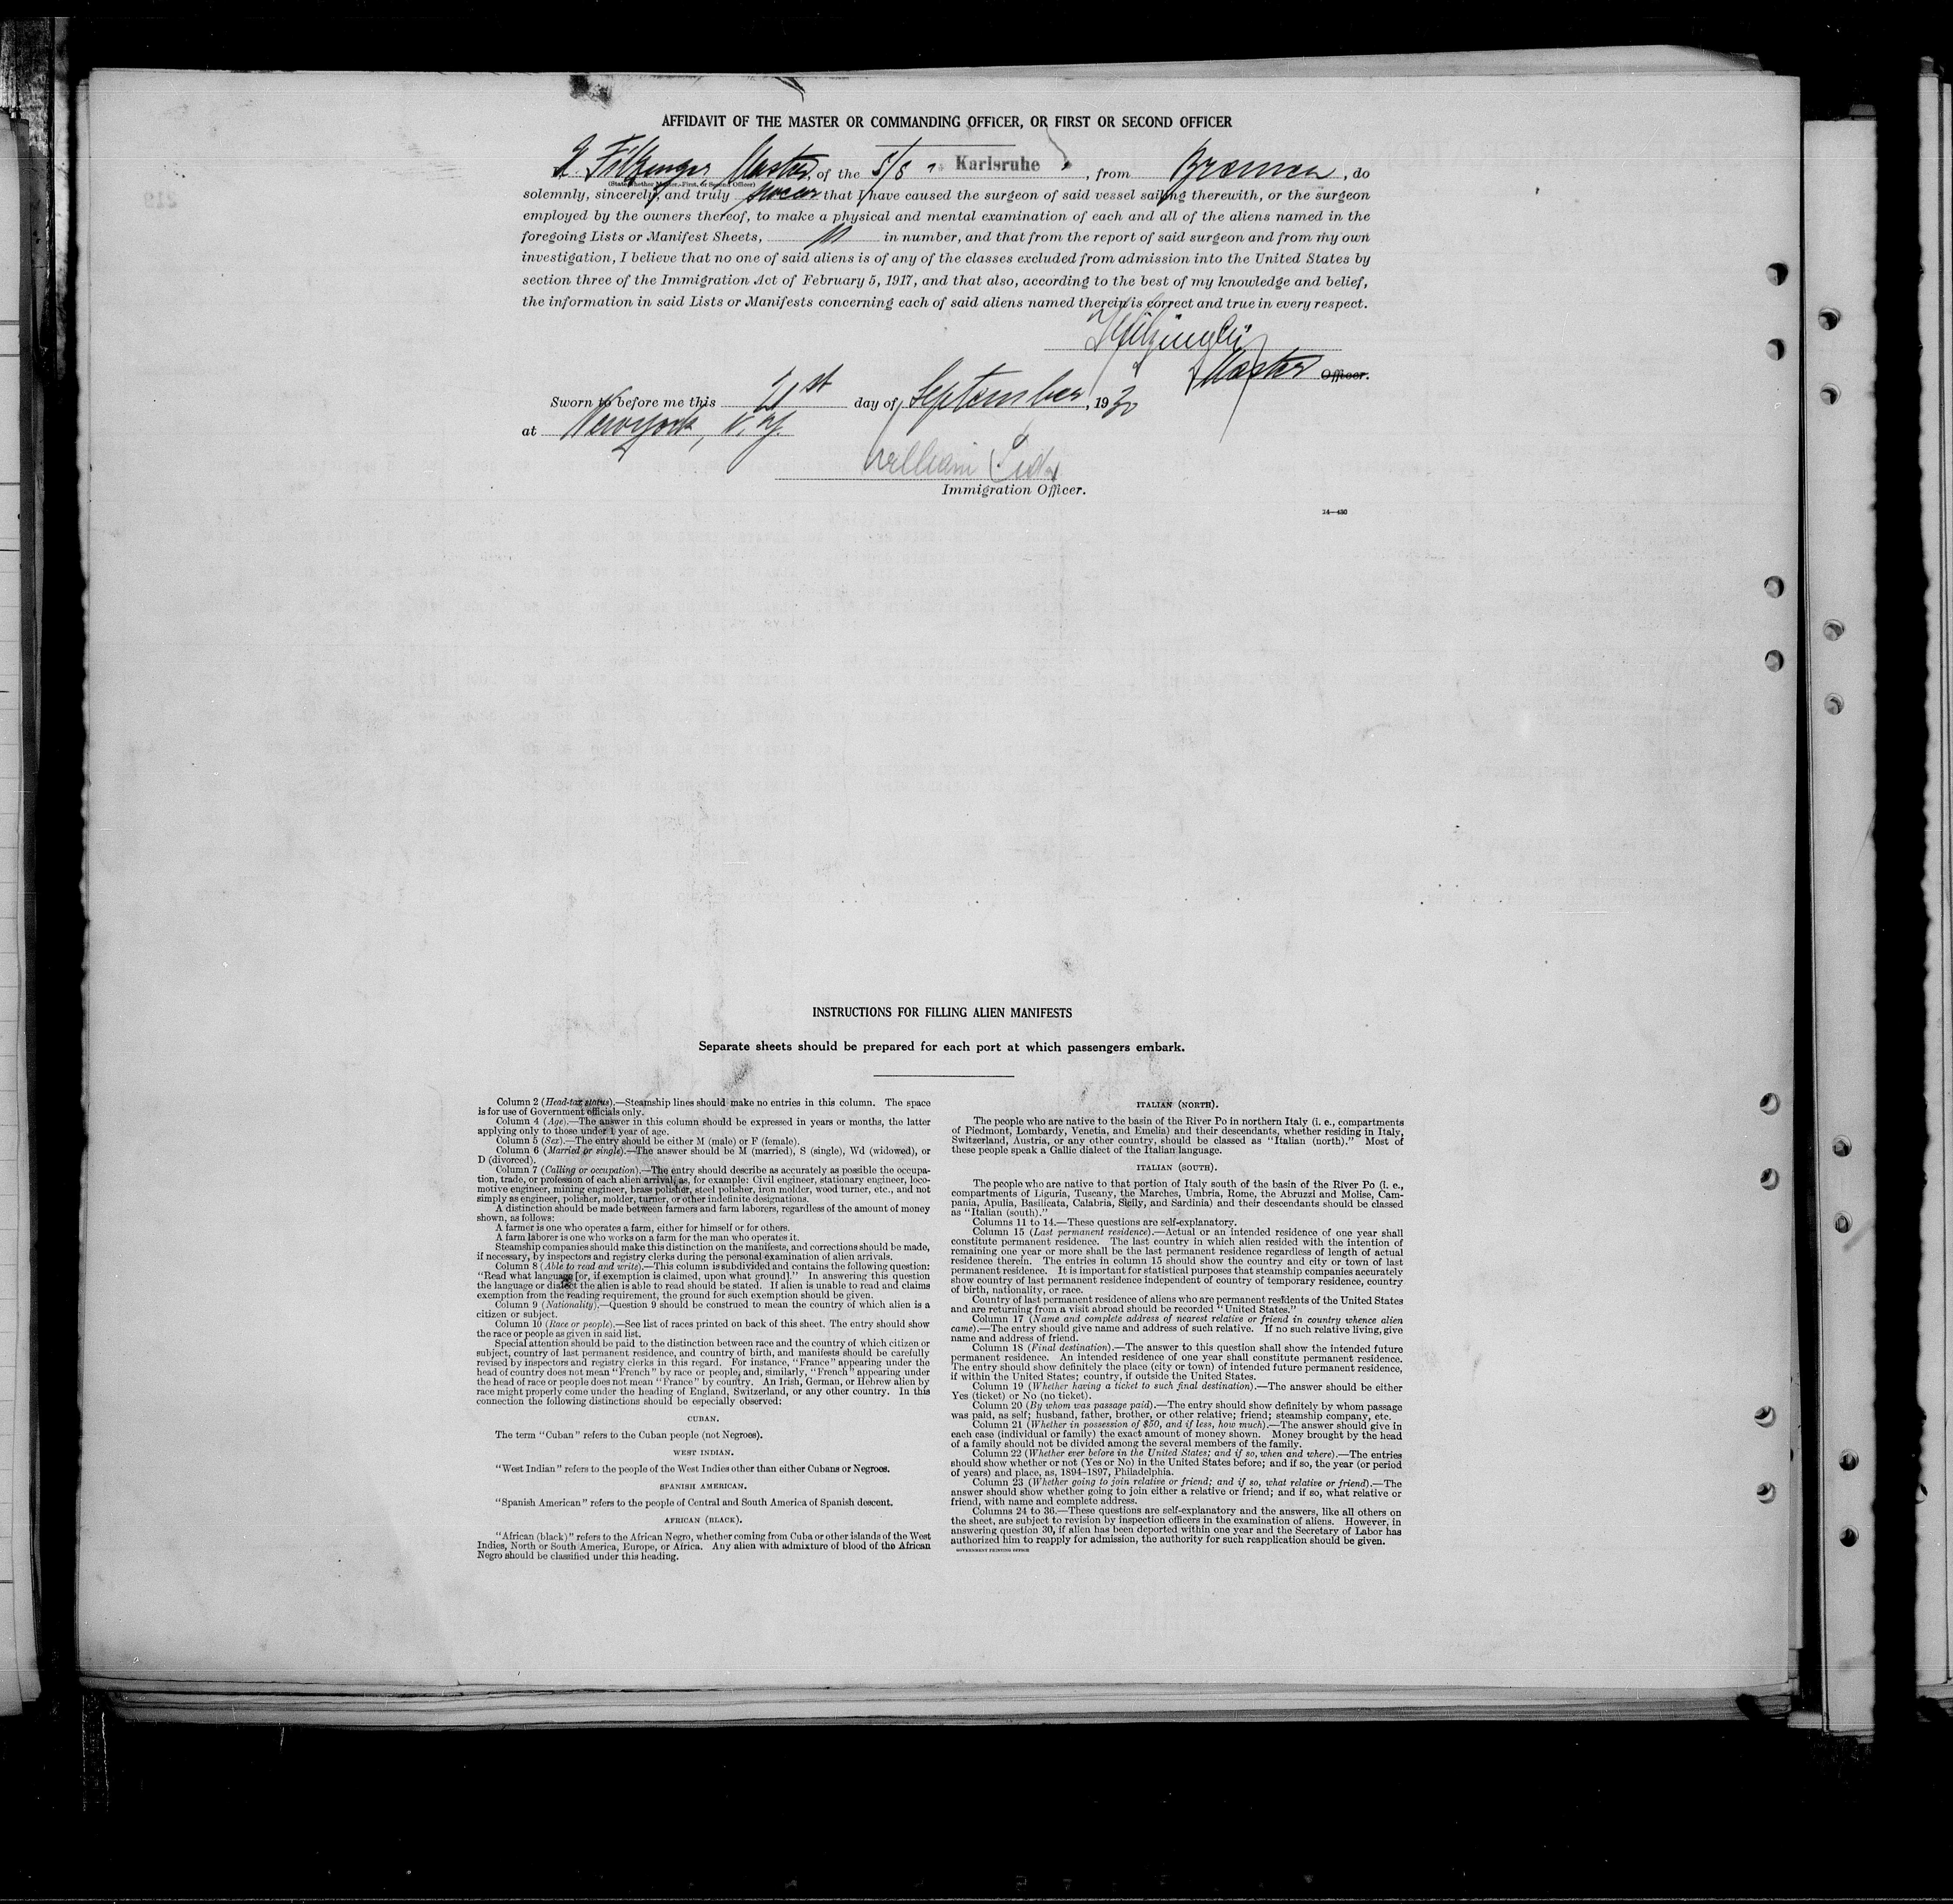 AFFIDAVIT OF THE MASTER OR COMMANDING OFFICER, OR FIRST OR SECOND OFFICER
Master, of the S/S " Karlsruhe ", from Bremen, do
(State whether Master, First, or Second Officer)
solemnly, sincerely, and truly swear that I have caused the surgeon of said vessel sailing therewith, or the surgeon
employed by the owners thereof, to make a physical and mental examination of each and all of the aliens named in the
foregoing Lists or Manifest Sheets, in number, and that from the report of said surgeon and from my own
investigation, I believe that no one of said aliens is of any of the classes excluded from admission into the United States by
section three of the Immigration Act of February 5, 1917, and that also, according to the best of my knowledge and belief,
the information in said Lists or Manifests concerning each of said aliens named therein is correct and true in every respect.
Master Officer.
Sworn to before me this 21st day of September, 1930
at New York, N.Y.
William
Immigration Officer.
24—430
INSTRUCTIONS FOR FILLING ALIEN MANIFESTS
Separate sheets should be prepared for each port at which passengers embark.
Column 2 (Head-tax status).—Steamship lines should make no entries in this column. The space
is for use of Government officials only.
Column 4 (Age).—The answer in this column should be expressed in years or months, the latter
applying only to those under 1 year of age.
Column 5 (Sex).—The entry should be either M (male) or F (female).
Column 6 (Married or single).—The answer should be M (married), S (single), Wd (widowed), or
D (divorced).
Column 7 (Calling or occupation).—The entry should describe as accurately as possible the occupa-
tion, trade, or profession of each alien arrival, as, for example: Civil engineer, stationary engineer, loco-
motive engineer, mining engineer, brass polisher, steel polisher, iron molder, wood turner, etc., and not
simply as engineer, polisher, molder, turner, or other indefinite designations.
A distinction should be made between farmers and farm laborers, regardless of the amount of money
shown, as follows:
A farmer is one who operates a farm, either for himself or for others.
A farm laborer is one who works on a farm for the man who operates it.
Steamship companies should make this distinction on the manifests, and corrections should be made,
if necessary, by inspectors and registry clerks during the personal examination of alien arrivals.
Column 8 (Able to read and write).—This column is subdivided and contains the following question:
"Read what language [or, if exemption is claimed, upon what ground]." In answering this question
the language or dialect the alien is able to read should be stated. If alien is unable to read and claims
exemption from the reading requirement, the ground for such exemption should be given.
Column 9 (Nationality).—Question 9 should be construed to mean the country of which alien is a
citizen or subject.
Column 10 (Race or people).—See list of races printed on back of this sheet. The entry should show
the race or people as given in said list.
Special attention should be paid to the distinction between race and the country of which citizen or
subject, country of last permanent residence, and country of birth, and manifests should be carefully
revised by inspectors and registry clerks in this regard. For instance, "France" appearing under the
head of country does not mean "French" by race or people, and, similarly, "French" appearing under
the head of race or people does not mean "France" by country. An Irish, German, or Hebrew alien by
race might properly come under the heading of England, Switzerland, or any other country. In this
connection the following distinctions should be especially observed:
CUBAN.
The term "Cuban" refers to the Cuban people (not Negroes).
WEST INDIAN.
"West Indian" refers to the people of the West Indies other than either Cubans or Negroes.
SPANISH AMERICAN.
"Spanish American" refers to the people of Central and South America of Spanish descent.
AFRICAN (BLACK).
"African (black)" refers to the African Negro, whether coming from Cuba or other islands of the West
Indies, North or South America, Europe, or Africa. Any alien with admixture of blood of the African
Negro should be classified under this heading.
ITALIAN (NORTH).
The people who are native to the basin of the River Po in northern Italy (i. e., compartments
of Piedmont, Lombardy, Venetia, and Emelia) and their descendants, whether residing in Italy,
Switzerland, Austria, or any other country, should be classed as "Italian (north)." Most of
these people speak a Gallic dialect of the Italian language.
ITALIAN (SOUTH).
The people who are native to that portion of Italy south of the basin of the River Po (i. e.,
compartments of Liguria, Tuscany, the Marches, Umbria, Rome, the Abruzzi and Molise, Cam-
pania, Apulia, Basilicata, Calabria, Sicily, and Sardinia) and their descendants should be classed
as "Italian (south)."
Columns 11 to 14.—These questions are self-explanatory.
Column 15 (Last permanent residence).—Actual or an intended residence of one year shall
constitute permanent residence. The last country in which alien resided with the intention of
remaining one year or more shall be the last permanent residence regardless of length of actual
residence therein. The entries in column 15 should show the country and city or town of last
permanent residence. It is important for statistical purposes that steamship companies accurately
show country of last permanent residence independent of country of temporary residence, country
of birth, nationality, or race.
Country of last permanent residence of aliens who are permanent residents of the United States
and are returning from a visit abroad should be recorded "United States."
Column 17 (Name and complete address of nearest relative or friend in country whence alien
came).—The entry should give name and address of such relative. If no such relative living, give
name and address of friend.
Column 18 (Final destination).—The answer to this question shall show the intended future
permanent residence. An intended residence of one year shall constitute permanent residence.
The entry should show definitely the place (city or town) of intended future permanent residence,
if within the United States; country, if outside the United States.
Column 19 (Whether having a ticket to such final destination).—The answer should be either
Yes (ticket) or No (no ticket).
Column 20 (By whom was passage paid).—The entry should show definitely by whom passage
was paid, as self; husband, father, brother, or other relative; friend; steamship company, etc.
Column 21 (Whether in possession of $50, and if less, how much).—The answer should give in
each case (individual or family) the exact amount of money shown. Money brought by the head
of a family should not be divided among the several members of the family.
Column 22 (Whether ever before in the United States; and if so, when and where).—The entries
should show whether or not (Yes or No) in the United States before; and if so, the year (or period
of years) and place, as, 1894–1897, Philadelphia.
Column 23 (Whether going to join relative or friend; and if so, what relative or friend).—The
answer should show whether going to join either a relative or friend; and if so, what relative or
friend, with name and complete address.
Columns 24 to 36.—These questions are self-explanatory and the answers, like all others on
the sheet, are subject to revision by inspection officers in the examination of aliens. However, in
answering question 30, if alien has been deported within one year and the Secretary of Labor has
authorized him to reapply for admission, the authority for such reapplication should be given.
GOVERNMENT PRINTING OFFICE